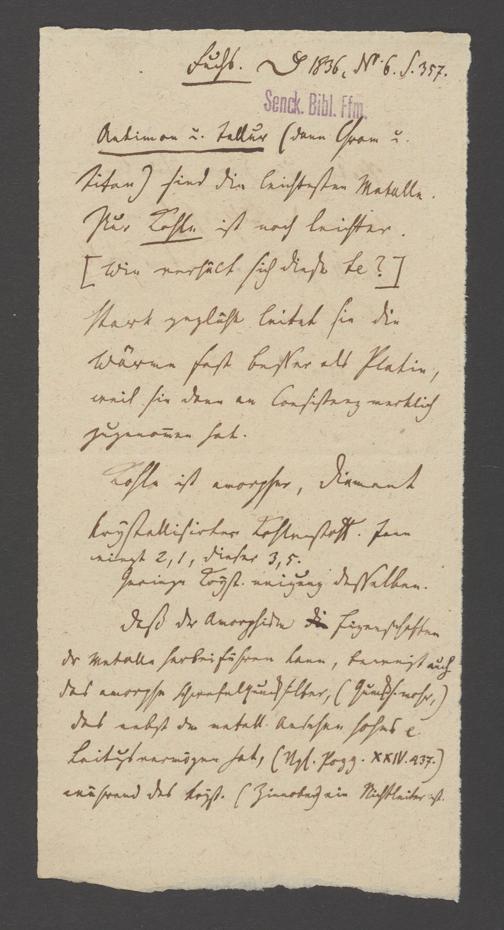 Fuchs. 1836, No. 6. S. 357.
Senck. Bibl. Ffm.
Antimon u. Tellur (dann Chrom u.
Titan) sind die leichtesten Metalle.
Nur Kohle ist noch leichter.
[Wie verhält sich diese te?]
Stark geglüht leitet sie die
Wärme fast besser als Platin,
weil sie dann an Consistenz merklich
zugenom̄en hat.
Kohle ist amorpher, Diamant
krystallisirter Kohlenstoff. Jene
wiegt 2,1, dieser 3,5.
Geringe Kryst. neigung desselben.
Daß der Amorphism Eigenschaften
der Metalle herbeiführen kann, beweist auch
das amorphe Schwefelquecksilber,
das nebst dem metall. Ansehen hohes
Leitugsvermögen hat, (Vgl. Pogg. XXIV.
während das kryst. (Zinnober) ein Nichtleiter ist.